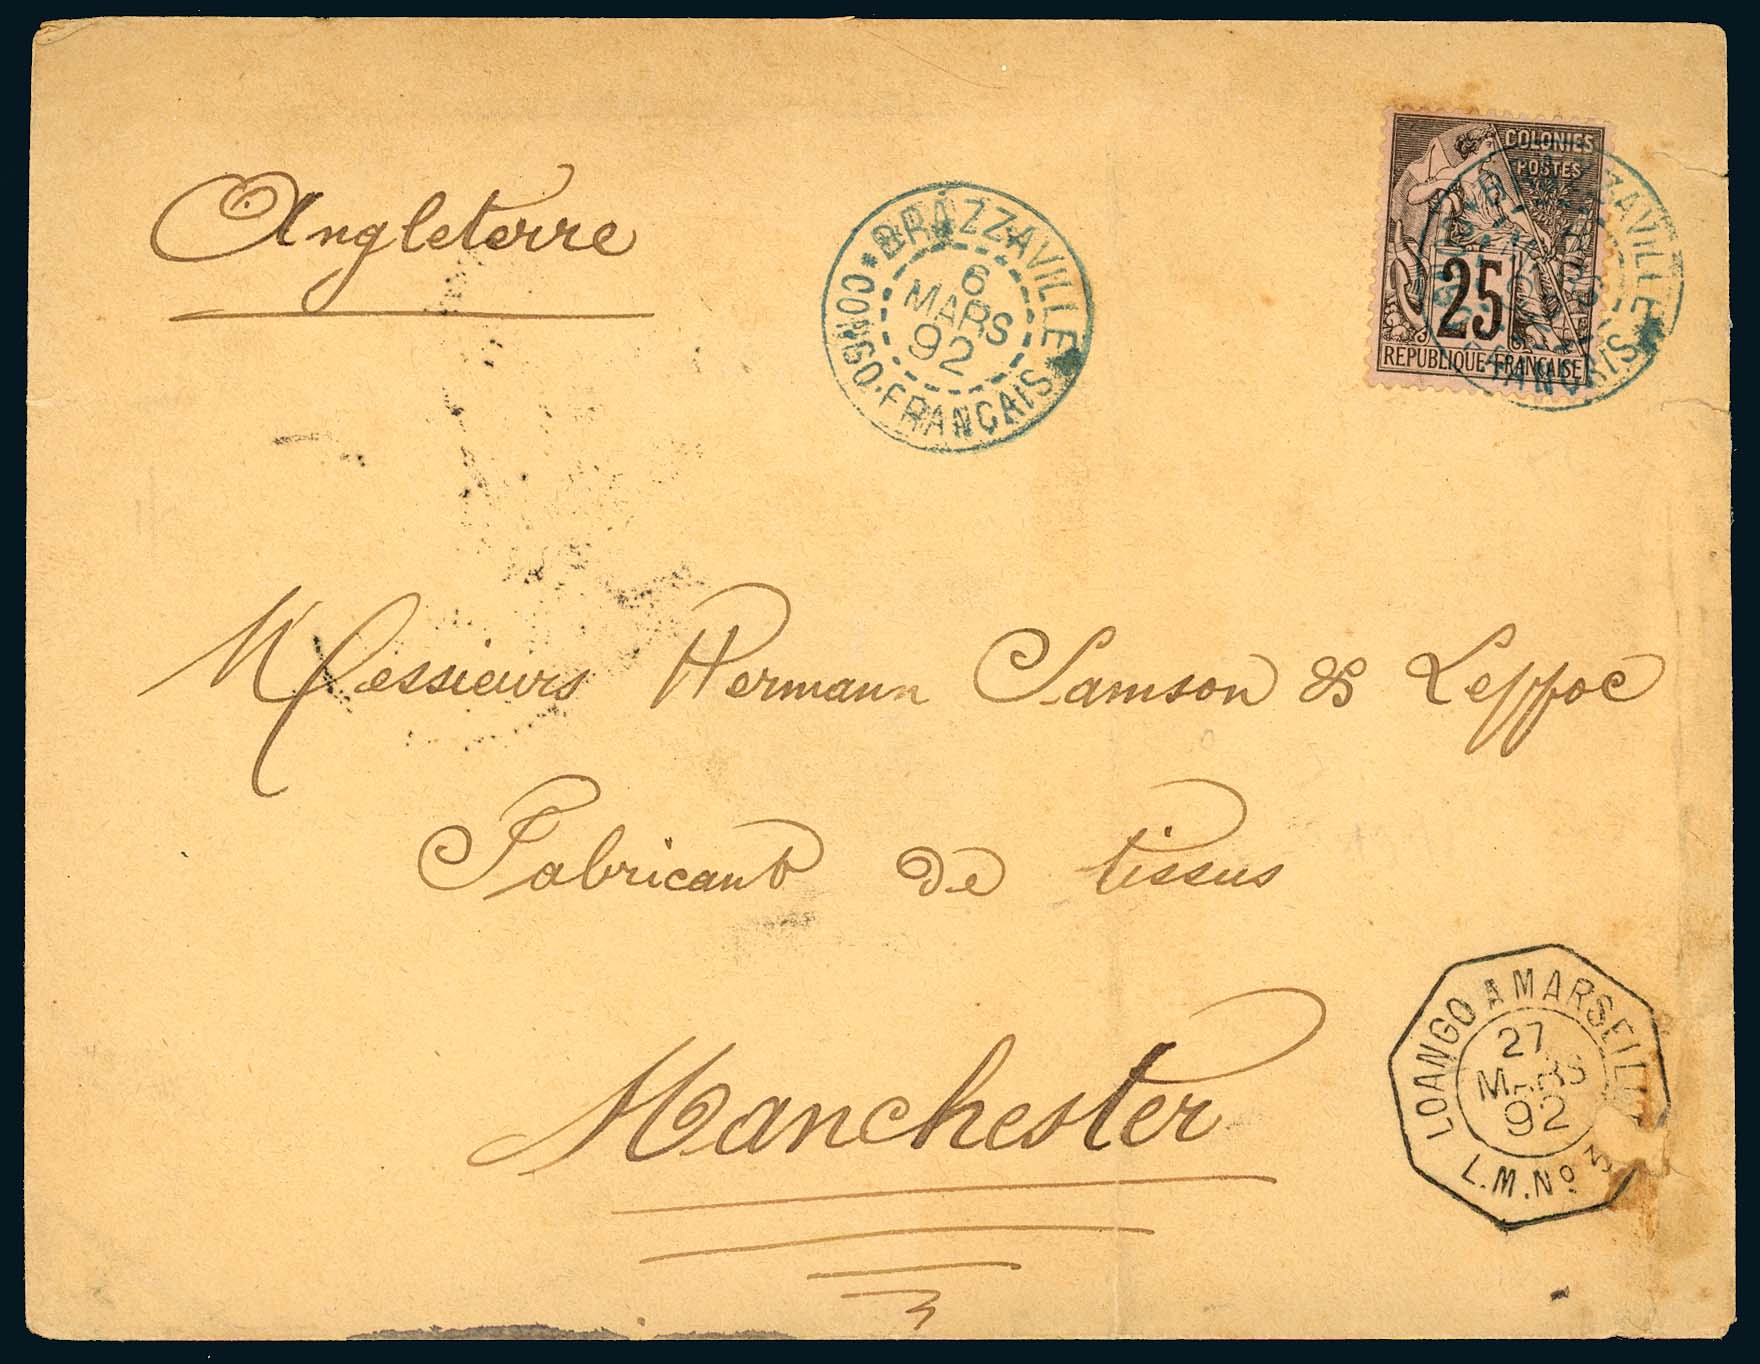 Angleterre
BRAZZAVILLE
6
MARS
92
CONGO-FRANÇAIS
COLONIES
POSTES
25
REPUBLIQUE FRANÇAISE
Messieurs Hermann Samson & Leppoc
Fabricant de tissus
Manchester
LOANGO A MARSEILLE
27
MARS
92
L.M.No 3